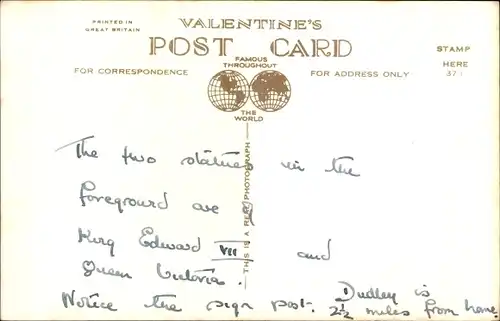 PRINTED IN
GREAT BRITAIN
VALENTINE'S
POST CARD
FAMOUS
THROUGHOUT
THE
WORLD
FOR CORRESPONDENCE
FOR ADDRESS ONLY
STAMP
HERE
THIS IS A REAL PHOTOGRAPH
The two statues in the
foreground are of
King Edward VII and
Queen Victoria.
Notice the sign post.
Dudley is
2½ miles from home.